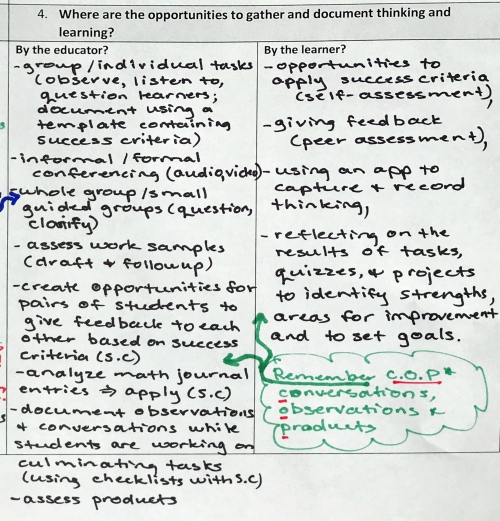 4. Where are the opportunities to gather and document thinking and
learning?
By the educator?
-group/individual tasks
(observe, listen to,
question learners;
document using a
template containing
success criteria)
-informal/formal
conferencing (audio,video)
whole group/small
guided groups (question,
clarify)
- assess work samples
(draft + followup)
-create opportunities for
pairs of students to
give feedback to each
other based on success
criteria (s.c)
-analyze math journal
entries ⇒ apply (s.c)
-document observations
+ conversations while
students are working on
culminating tasks
(using checklists with s.c)
-assess products
By the learner?
-opportunities to
apply success criteria
(self-assessment),
-giving feedback
(peer assessment),
-using an app to
capture + record
thinking,
-reflecting on the
results of tasks,
quizzes, + projects
to identify strengths,
areas for improvement
and to set goals.
Remember C.O.P*
conversations,
observations &
products